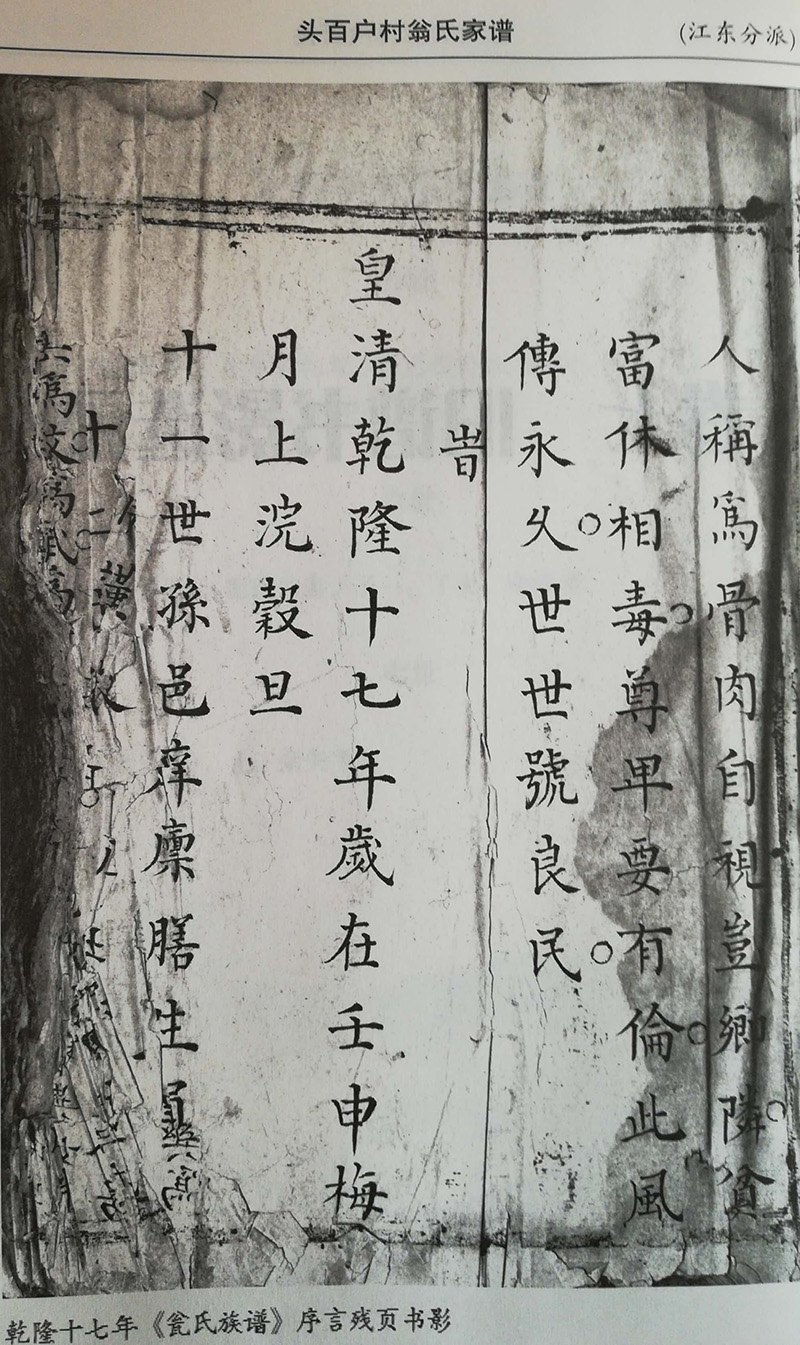 头百户村翁氏家谱
(江东分派)
人稱爲骨肉自視豈鄉隣貧
富休相毒尊卑要有倫此風
傳永久世世號良民
旹
皇清乾隆十七年歲在壬申梅
月上浣穀旦
十一世孫邑庠廪膳生員
十二
乾隆十七年《瓮氏族谱》序言残页书影